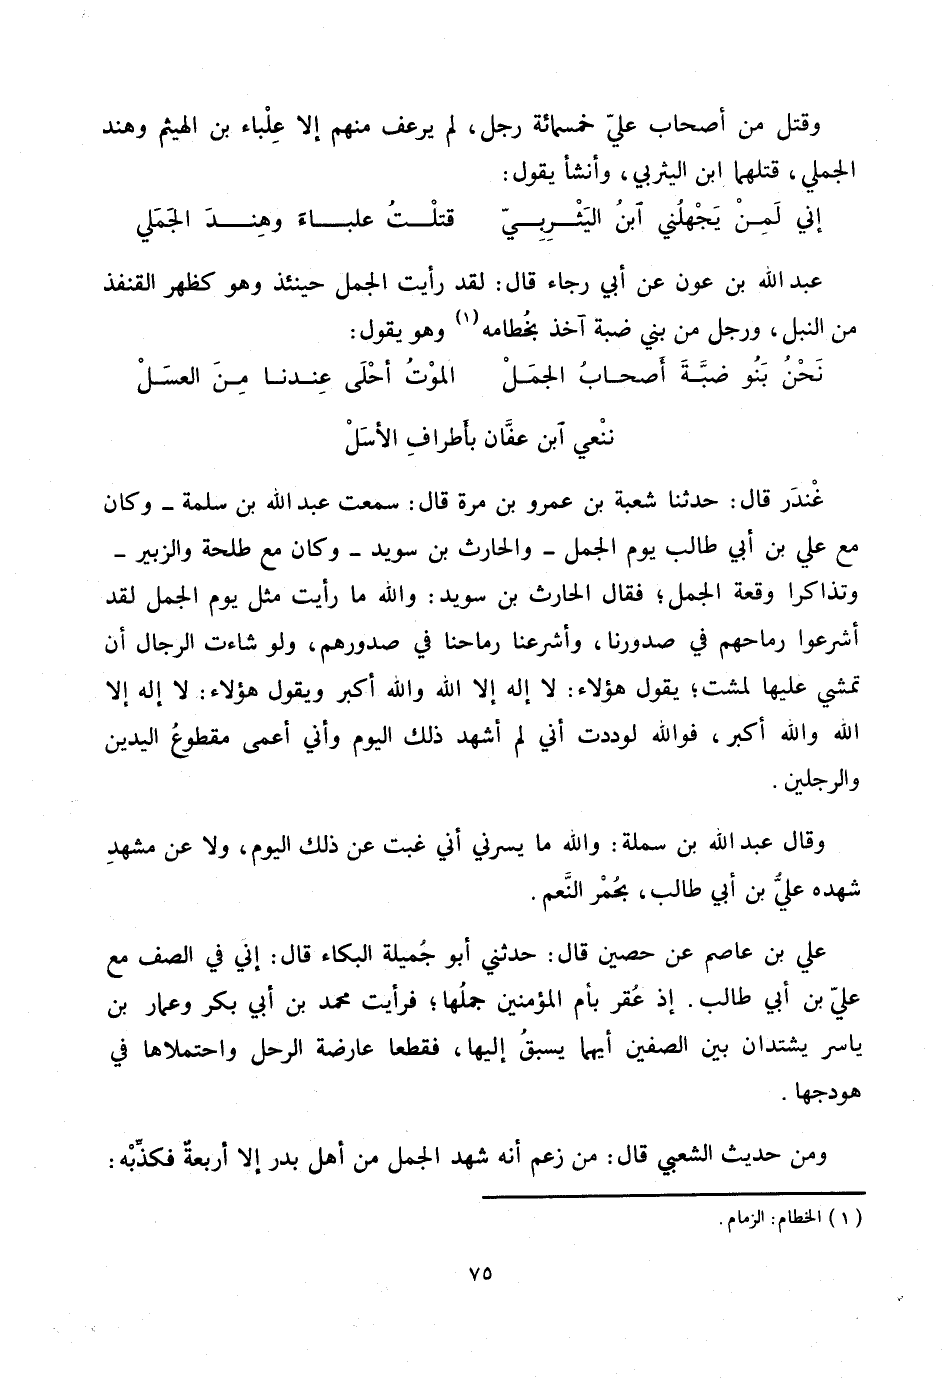 وقتل من أصحاب عليّ خمسمائة رجل، لم يرعف منهم إلا عِلْباء بن الهيثم وهند
الجملي، قتلهما ابن اليثربي، وأنشأ يقول:
إني لَمِنْ يَجْهلُني آبنُ اليَثْرِبيّ قتلْتُ علباءَ وهِندَ الجَمَلي
عبد الله بن عون عن أبي رجاء قال: لقد رأيت الجمل حينئذ وهو كظهر القنفذ
من النبل، ورجل من بني ضبة آخذ بخُطامه(١) وهو يقول:
نَحْنُ بَنُو ضبَّةَ أَصحابُ الجمَلْ الموْتُ أحْلَى عِندنا مِنَ العسَلْ
ننْعي آبن عفَّان بأَطرافِ الأسَلْ
غْندَر قال: حدثنا شعبة بن عمرو بن مرة قال: سمعت عبد الله بن سلمة ـ وكان
مع علي بن أبي طالب يوم الجمل ـ والحارث بن سويد ـ وكان مع طلحة والزبير ـ
وتذاكرا وقعة الجمل؛ فقال الحارث بن سويد: والله ما رأيت مثل يوم الجمل لقد
أشرعوا رماحهم في صدورنا، وأشرعنا رماحنا في صدورهم، ولو شاءت الرجال أن
تمشي عليها لمشت؛ يقول هؤلاء: لا إله إلا الله والله أكبر ويقول هؤلاء: لا إله إلا
الله والله أكبر، فوالله لوددت أني لم أشهد ذلك اليوم وأني أعمى مقطوعُ اليدين
والرجلين.
وقال عبد الله بن سملة: والله ما يسرني أني غبت عن ذلك اليوم، ولا عن مشهدِ
شهده عليُّ بن أبي طالب، بحُمْر النَّعم.
علي بن عاصم عن حصين قال: حدثني أبو جُميلة البكاء قال: إني في الصف مع
عليّ بن أبي طالب. إذ عُقر بأم المؤمنين جملُها؛ فرأيت محمد بن أبي بكر وعمار بن
ياسر يشتدان بين الصفين أيهما يسبقُ إليها، فقطعا عارضة الرحل واحتملاها في
هودجها.
ومن حديث الشعبي قال: من زعم أنه شهد الجمل من أهل بدر إلا أربعةٌ فكذِّبْه:
(١) الخطام: الزمام.
٧٥